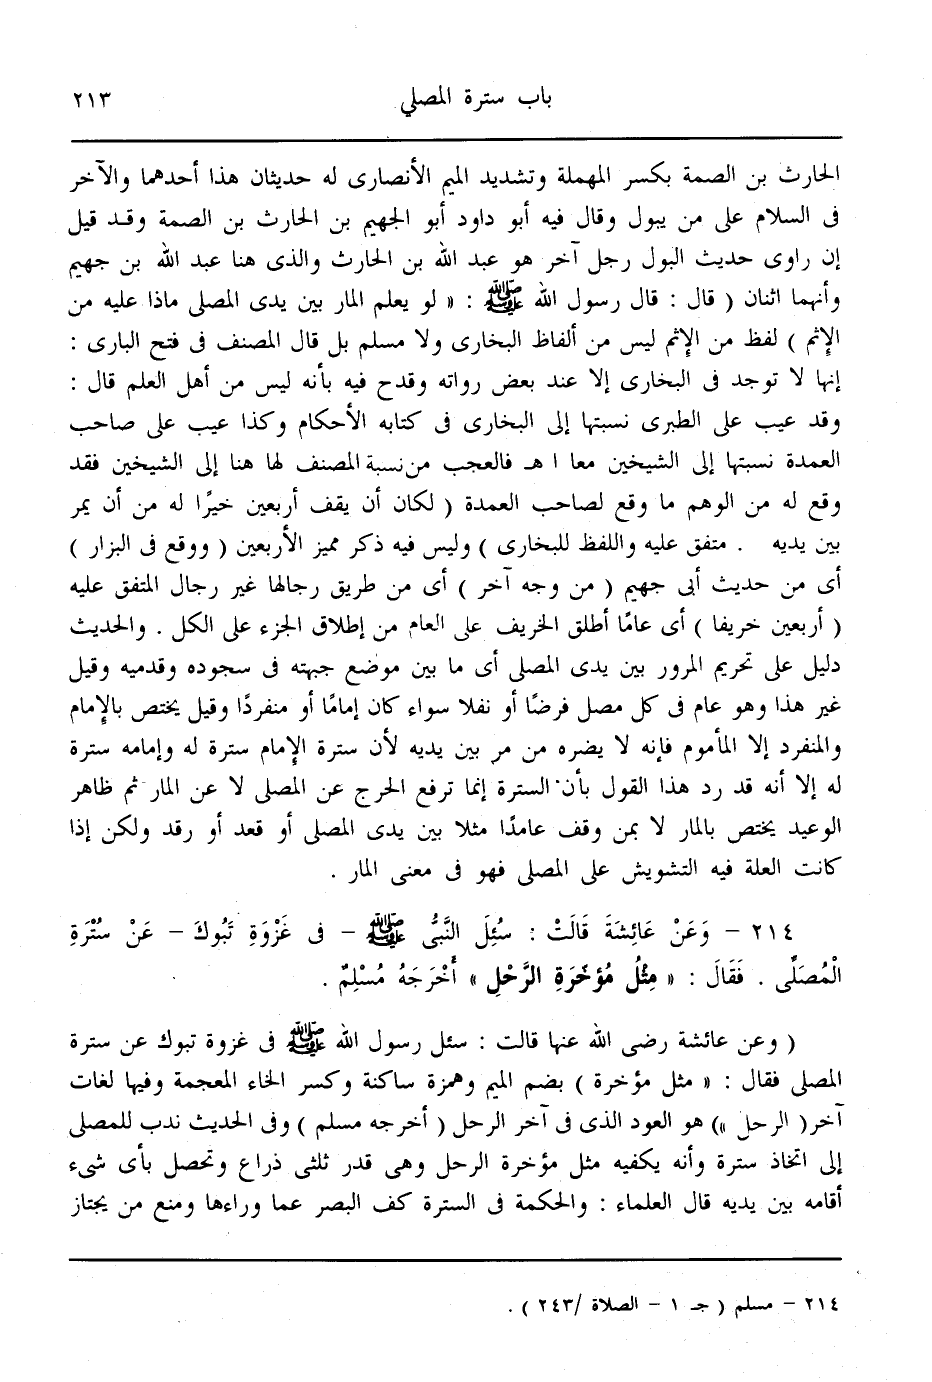 باب سترة المصلي ٢١٣
الحارث بن الصمة بكسر المهملة وتشديد الميم الأنصارى له حديثان هذا أحدهما والآخر
فى السلام على من يبول وقال فيه أبو داود أبو الجهيم بن الحارث بن الصمة وقد قيل
إن راوى حديث البول رجل آخر هو عبد الله بن الحارث والذى هنا عبد الله بن جهيم
وأنهما اثنان ( قال : قال رسول الله ﷺ : « لو يعلم المار بين يدى المصلى ماذا عليه من
الإثم ) لفظ من الإثم ليس من ألفاظ البخارى ولا مسلم بل قال المصنف فى فتح البارى :
إنها لا توجد فى البخارى إلا عند بعض رواته وقدح فيه بأنه ليس من أهل العلم قال :
وقد عيب على الطبرى نسبتها إلى البخارى فى كتابه الأحكام وكذا عيب على صاحب
العمدة نسبتها إلى الشيخين معا ا هـ فالعجب من نسبة المصنف لها هنا إلى الشيخين فقد
وقع له من الوهم ما وقع لصاحب العمدة ( لكان أن يقف أربعين خيرًا له من أن يمر
بين يديه . متفق عليه واللفظ للبخارى ) وليس فيه ذكر مميز الأربعين ( ووقع فى البزار )
أى من حديث أبى جهيم ( من وجه آخر ) أى من طريق رجالها غير رجال المتفق عليه
( أربعين خريفا ) أى عامًا أطلق الخريف على العام من إطلاق الجزء على الكل . والحديث
دليل على تحريم المرور بين يدى المصلى أى ما بين موضع جبهته فى سجوده وقدميه وقيل
غير هذا وهو عام فى كل مصل فرضًا أو نفلا سواء كان إمامًا أو منفردًا وقيل يختص بالإمام
والمنفرد إلا المأموم فإنه لا يضره من مر بين يديه لأن سترة الإمام سترة له وإمامه سترة
له إلا أنه قد رد هذا القول بأن السترة إنما ترفع الحرج عن المصلى لا عن المار ثم ظاهر
الوعيد يختص بالمار لا بمن وقف عامدًا مثلا بين يدى المصلى أو قعد أو رقد ولكن إذا
كانت العلة فيه التشويش على المصلى فهو فى معنى المار .
٢١٤ – وَعَنْ عَائِشَةَ قَالَتْ : سُئِلَ النَّبىُّ ﷺ – فى غَزْوَةِ تَبُوكَ – عَنْ سُتْرَةِ
الْمُصَلِّى . فَقَالَ : « مِثْلُ مُؤخَرَةِ الرَّحْلِ » أَخْرَجَهُ مُسْلِمٌ .
( وعن عائشة رضى الله عنها قالت : سئل رسول الله ﷺ فى غزوة تبوك عن سترة
المصلى فقال : « مثل مؤخرة ) بضم الميم وهمزة ساكنة وكسر الخاء المعجمة وفيها لغات
آخر( الرحل ») هو العود الذى فى آخر الرحل ( أخرجه مسلم ) وفى الحديث ندب للمصلى
إلى اتخاذ سترة وأنه يكفيه مثل مؤخرة الرحل وهى قدر ثلثى ذراع وتحصل بأى شىء
أقامه بين يديه قال العلماء : والحكمة فى السترة كف البصر عما وراءها ومنع من يجتاز
٢١٤ – مسلم ( جـ ١ – الصلاة /٢٤٣ ) .